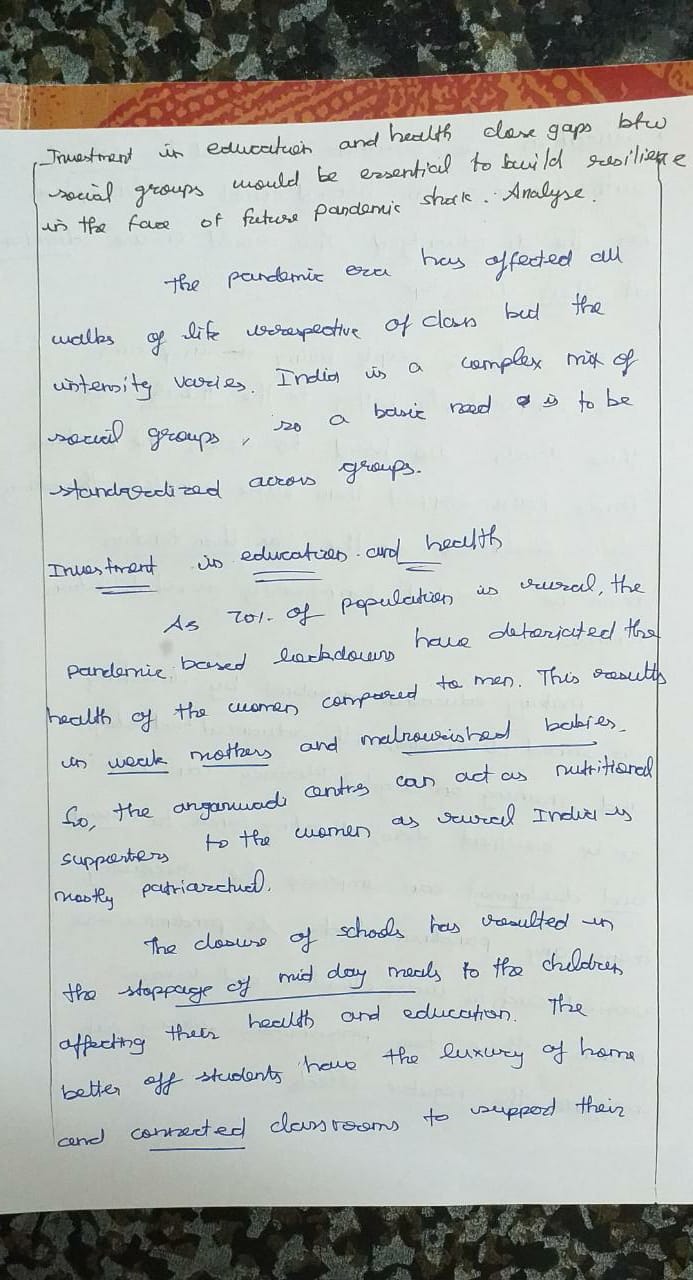 Investment in education and health close gaps btw
social groups would be essential to build resilience
in the face of future pandemic shock. Analyse.
The pandemic era has affected all
walks of life irrespective of class but the
intensity varies. India is a complex mix of
social groups, so a basic need is to be
standardized across groups.
Investment in education and health
As 70% of population is rural, the
pandemic based lockdowns have deteriated the
health of the women compared to men. This results
in weak mothers and malnourished babies.
So, the anganwadi centres can act as nutritional
supporters to the women as rural India is
mostly patriarchal.
The closure of schools has resulted in
the stoppage of mid day meals to the children
affecting their health and education. The
better off students have the luxury of home
and connected classrooms to support their